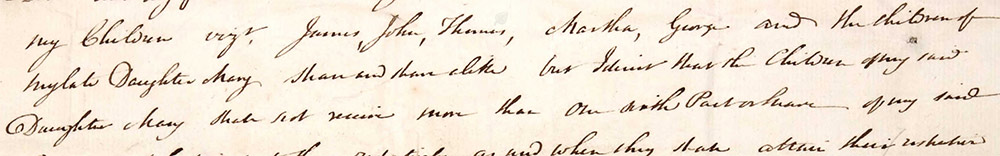 my Children vizt. James, John, Thomas, Martha, George and the Children of
my late Daughter Mary share and share alike but I direct that the Children of my said
Daughter Mary shall not receive more than One sixth Part or Share of my said
as and when they shall attain their respective